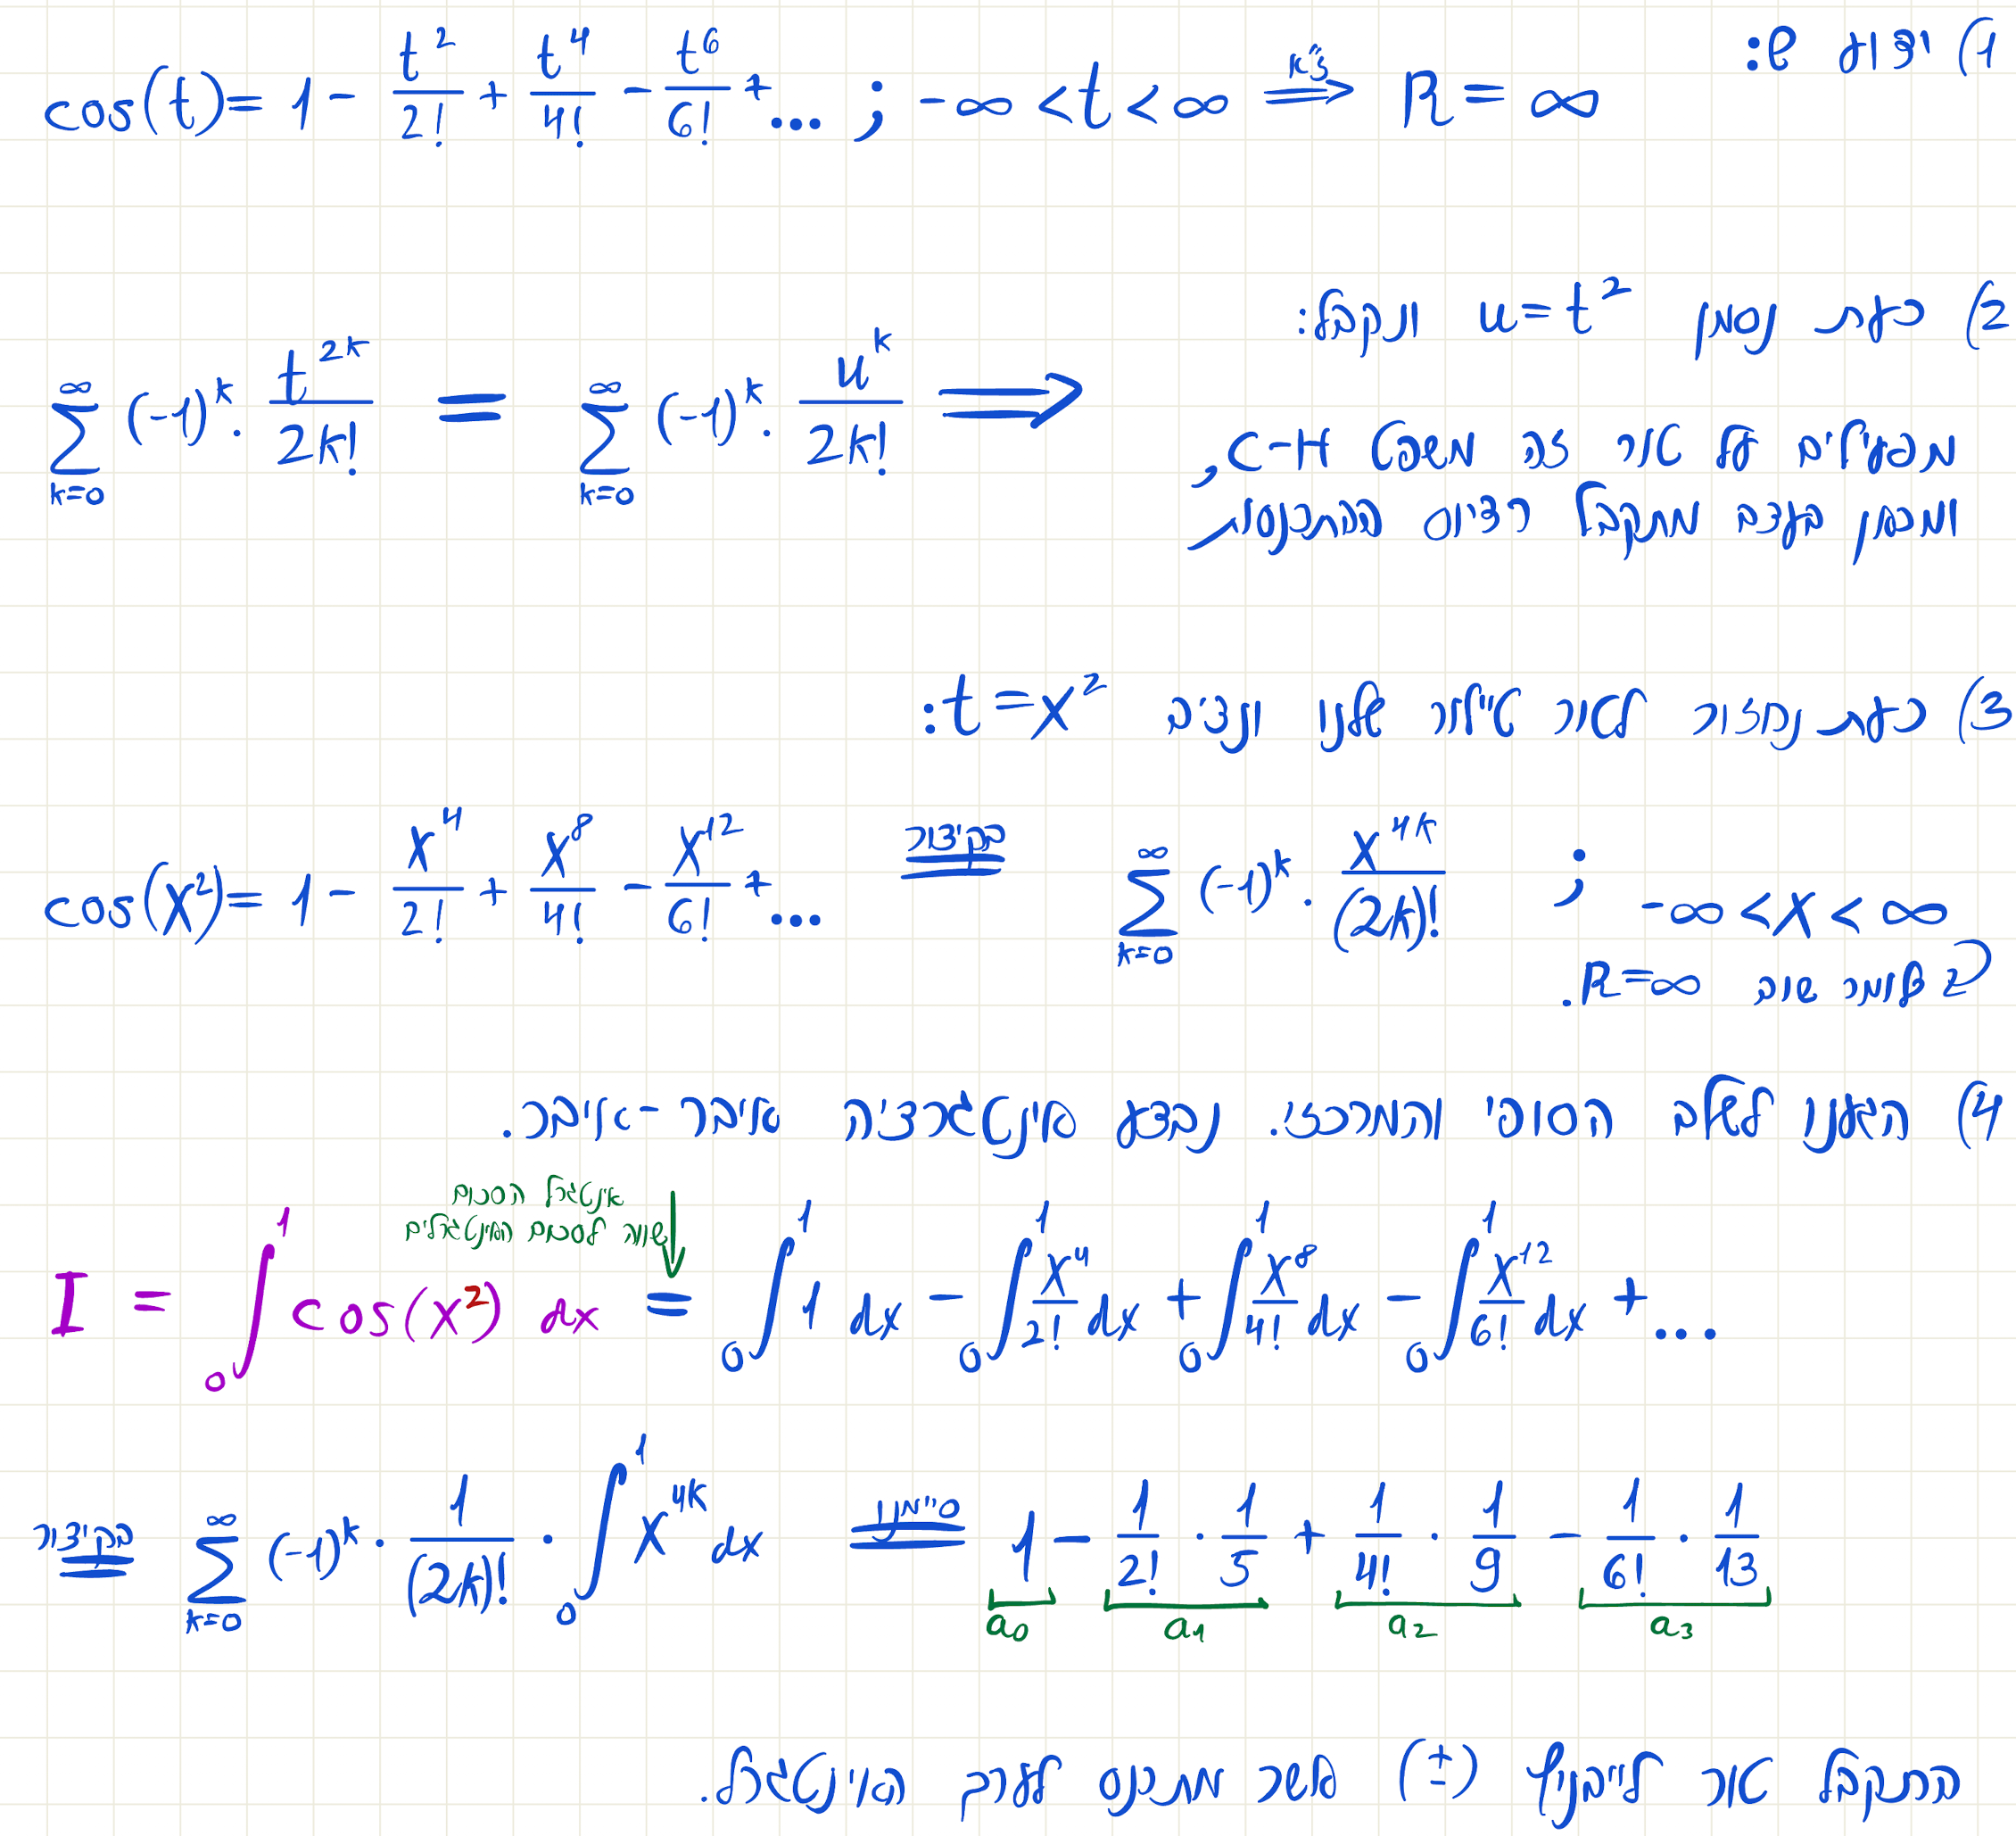 1) ידוע ש:
cos(t) = 1 - t²/2! + t⁴/4! - t⁶/6! + ... ; -∞ < t < ∞ ⟹ (ז״א) R = ∞
2) כעת נסמן u = t² ונקבל:
∑_{k=0}^{∞} (-1)^k · t^{2k}/2k! = ∑_{k=0}^{∞} (-1)^k · u^k/2k! ⟹
מפעילים על טור זה משפט C-H,
ומכאן בעצם מתקבל רדיוס ההתכנסות
3) כעת נחזור לטור טיילור שלנו ונציב t = x²:
cos(x²) = 1 - x⁴/2! + x⁸/4! - x¹²/6! + ... = (בקיצור) ∑_{k=0}^{∞} (-1)^k · x^{4k}/(2k)! ; -∞ < x < ∞
כלומר שוב R = ∞.
4) הגענו לשלב הסופי והמרכזי. נבצע אינטגרציה איבר-איבר.
אינטגרל הסכום
שווה לסכום האינטגרלים
I = ∫₀¹ cos(x²) dx = ∫₀¹ 1 dx - ∫₀¹ x⁴/2! dx + ∫₀¹ x⁸/4! dx - ∫₀¹ x¹²/6! dx + ...
= (בקיצור) ∑_{k=0}^{∞} (-1)^k · 1/(2k)! · ∫₀¹ x^{4k} dx = 1 - 1/2! · 1/5 + 1/4! · 1/9 - 1/6! · 1/13
a₀ a₁ a₂ a₃
התקבל טור לייבניץ (±) אשר מתכנס לערך האינטגרל.